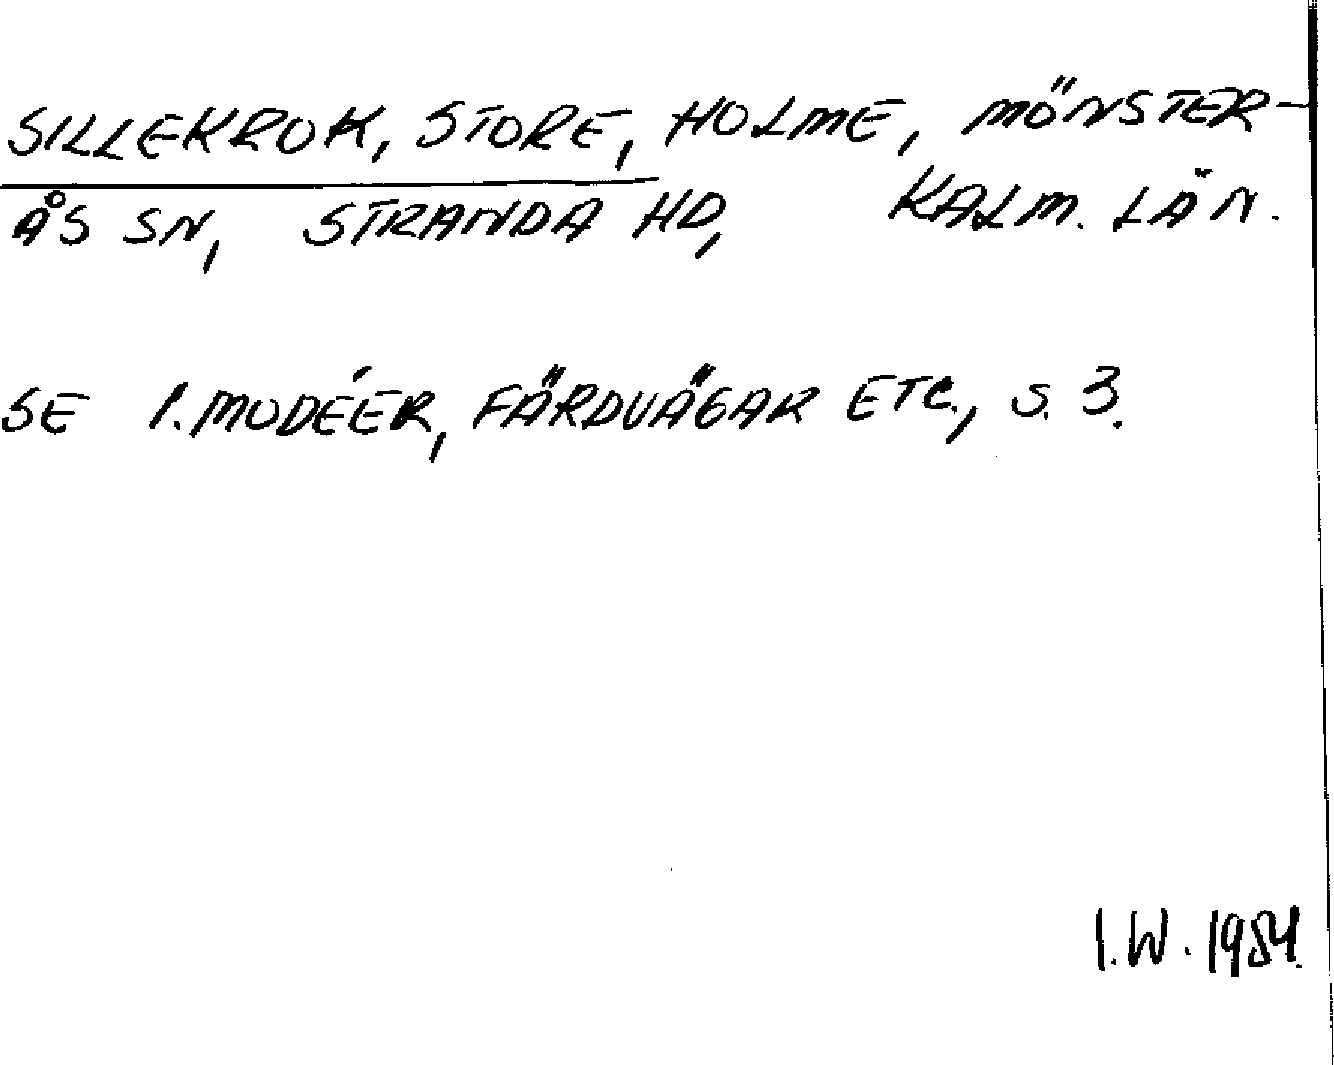 SILLEKROK, STORE, HOLME, MÖNSTER-
ÅS SN, STRANDA HD, KALM. LÄN.
SE I. MODÉER, FÄRDVÄGAR ETC., S. 3.
I.W. 1984.